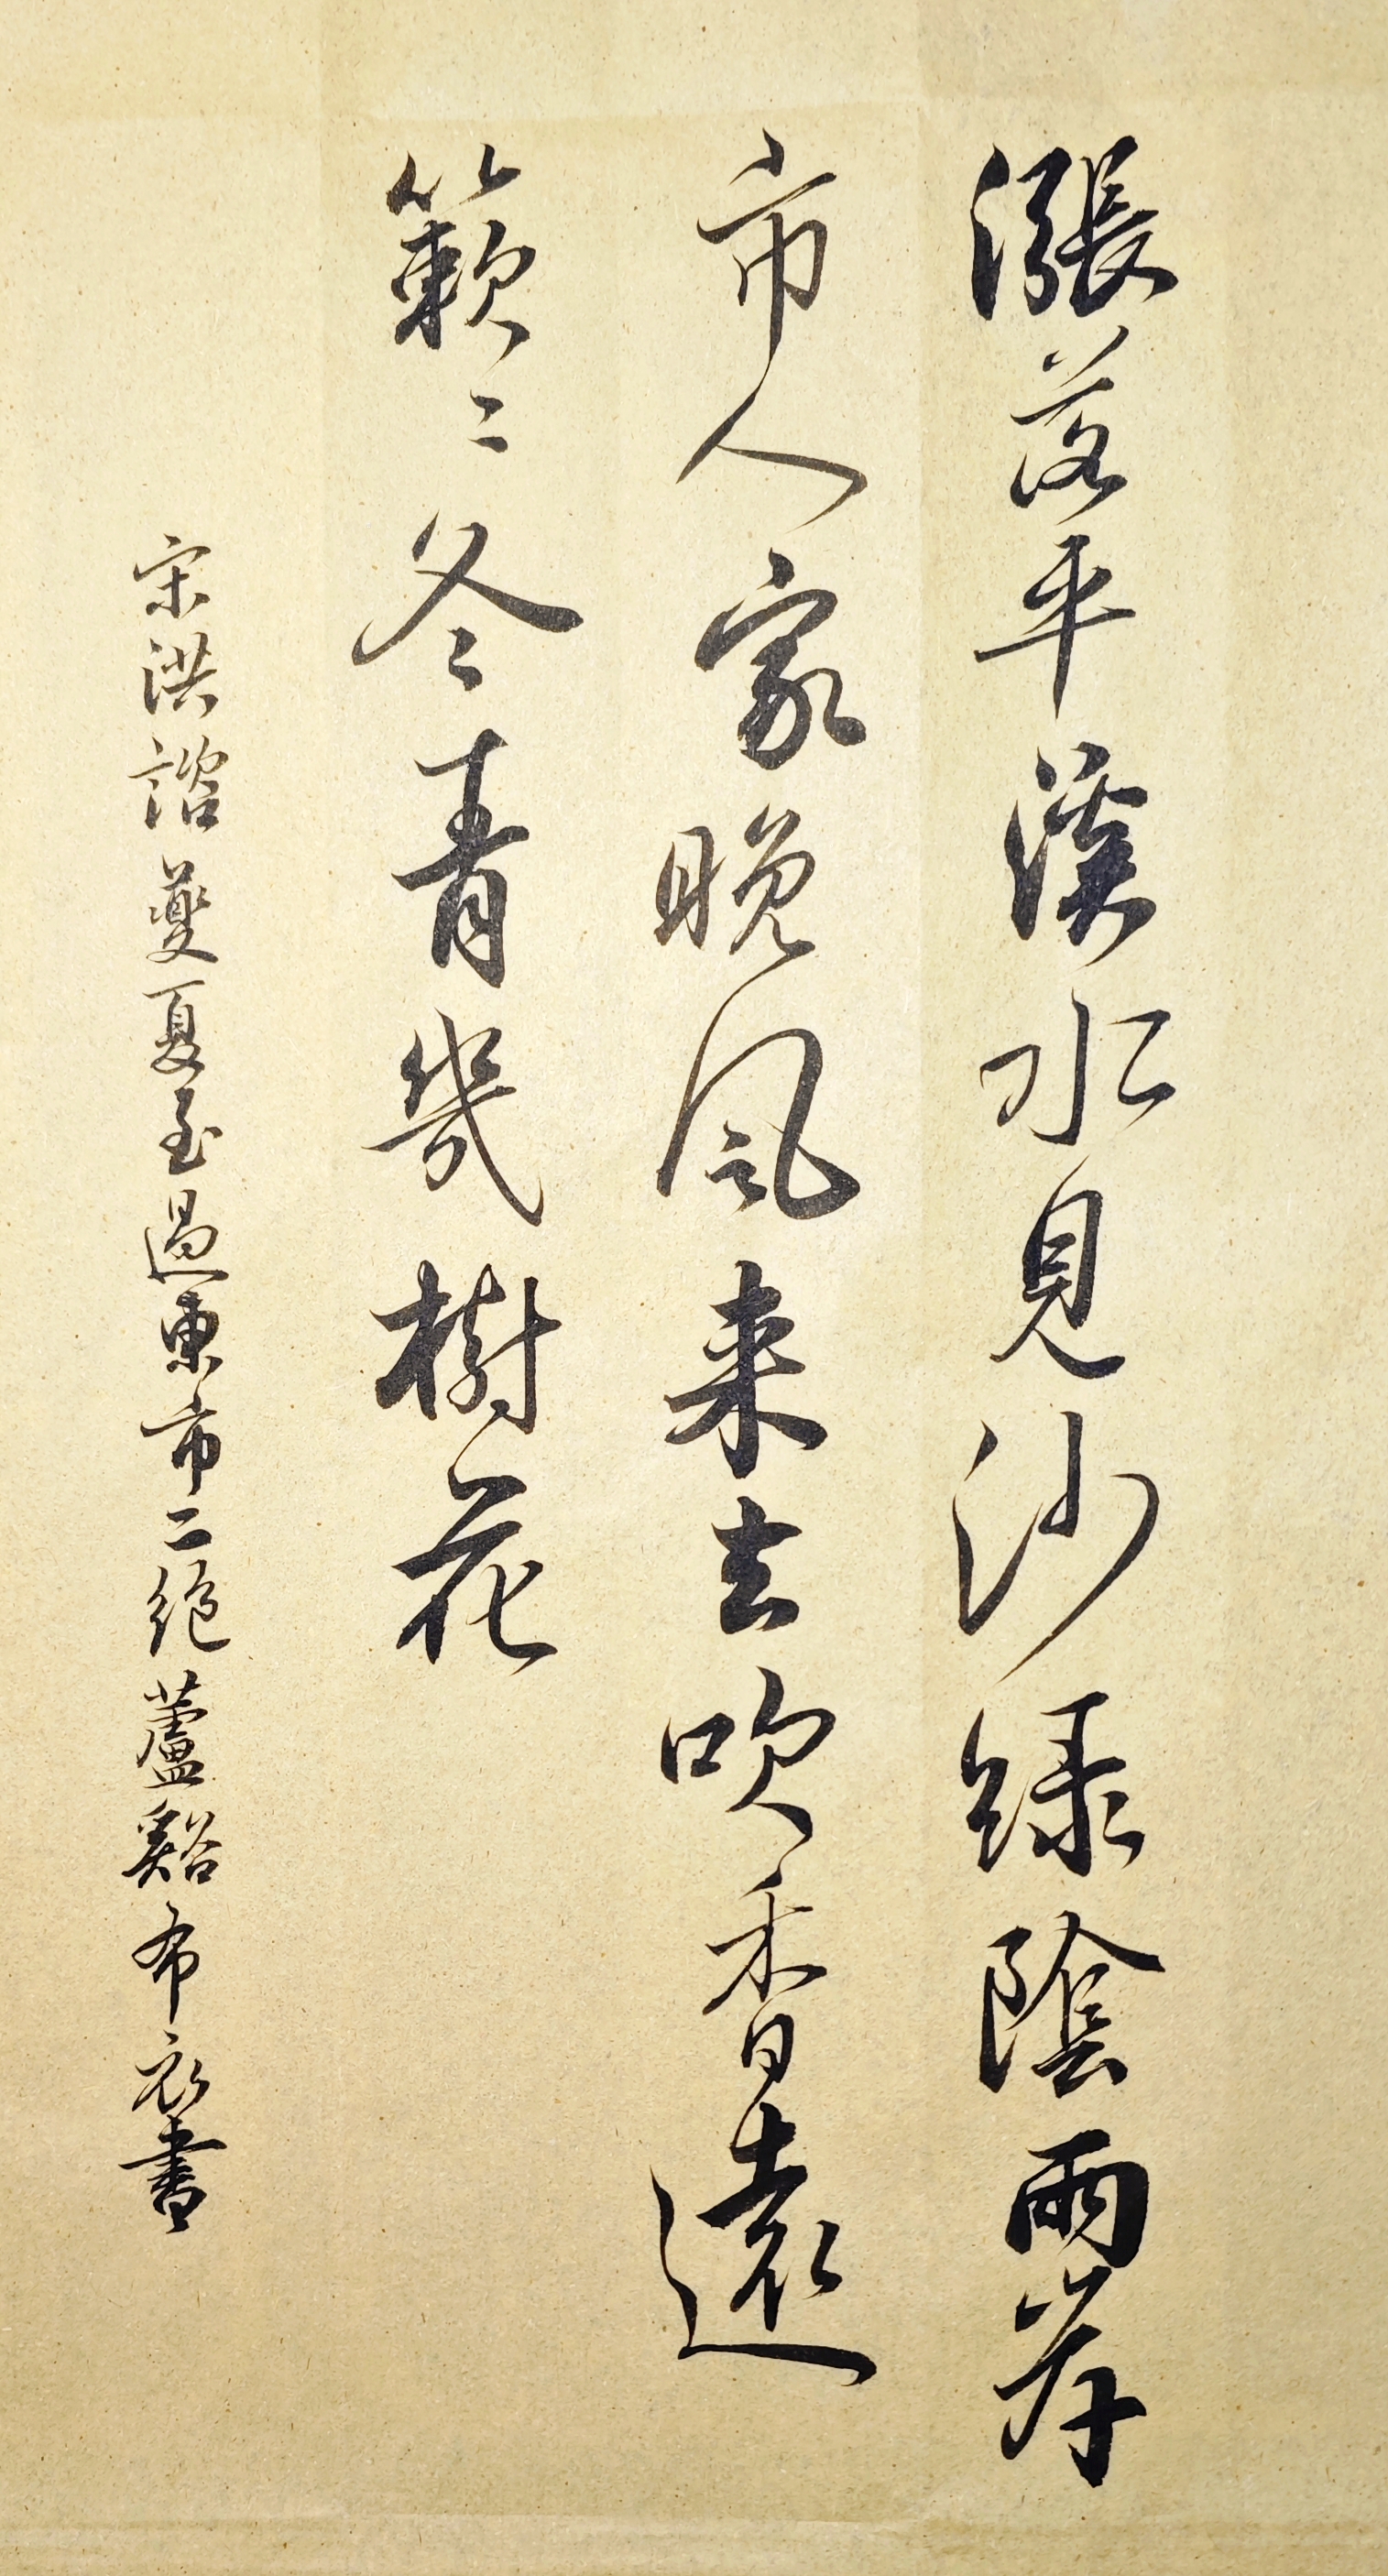 漲落平溪水見沙綠陰兩岸
市人家晚風来去吹香遠
簌〻冬青幾樹花
宋洪諮夔夏至過東市二絕蘆谿布衣書